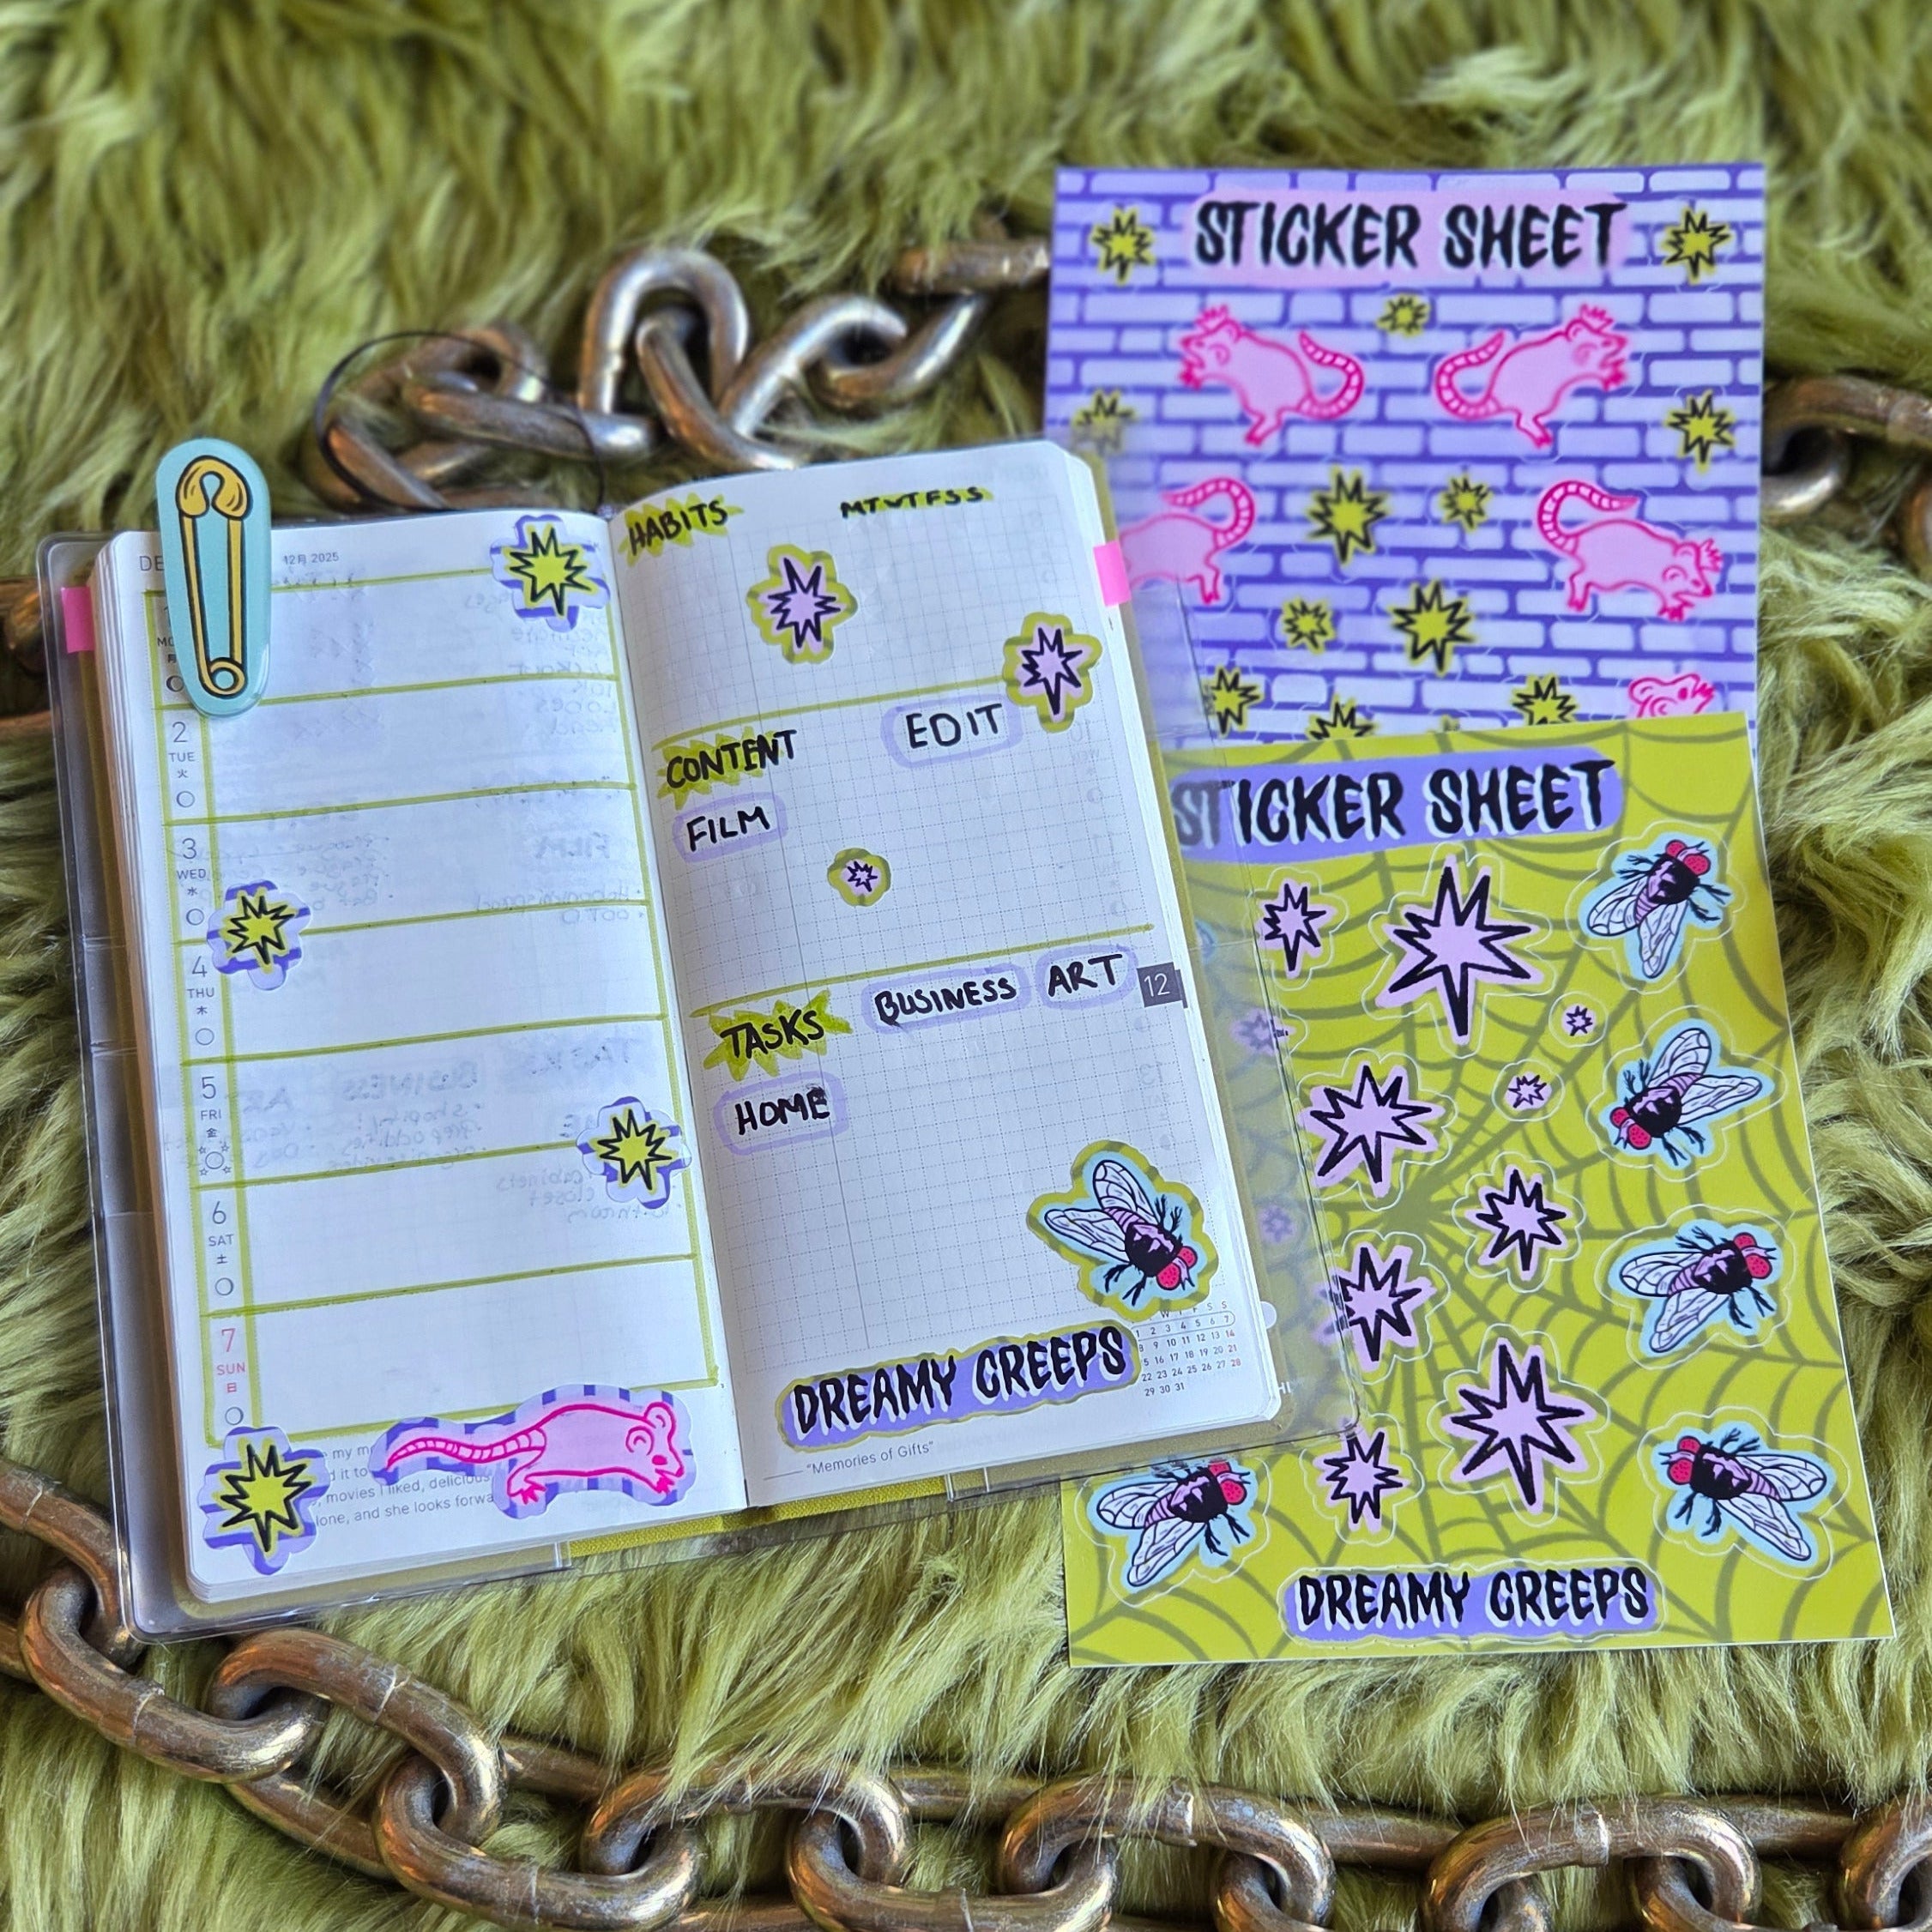 12月 2025
2
TUE
火
3
WED
水
4
THU
木
5
FRI
金
6
SAT
土
7
SUN
日
movies I liked, delicious
lone, and she looks forwa
HABITS MTWTFSS
CONTENT EDIT
FILM
TASKS BUSINESS ART
12
HOME
DREAMY CREEPS
1 2 3 4 5 6 7
8 9 10 11 12 13 14
15 16 17 18 19 20 21
22 23 24 25 26 27 28
29 30 31
"Memories of Gifts"
STICKER SHEET
STICKER SHEET
DREAMY CREEPS